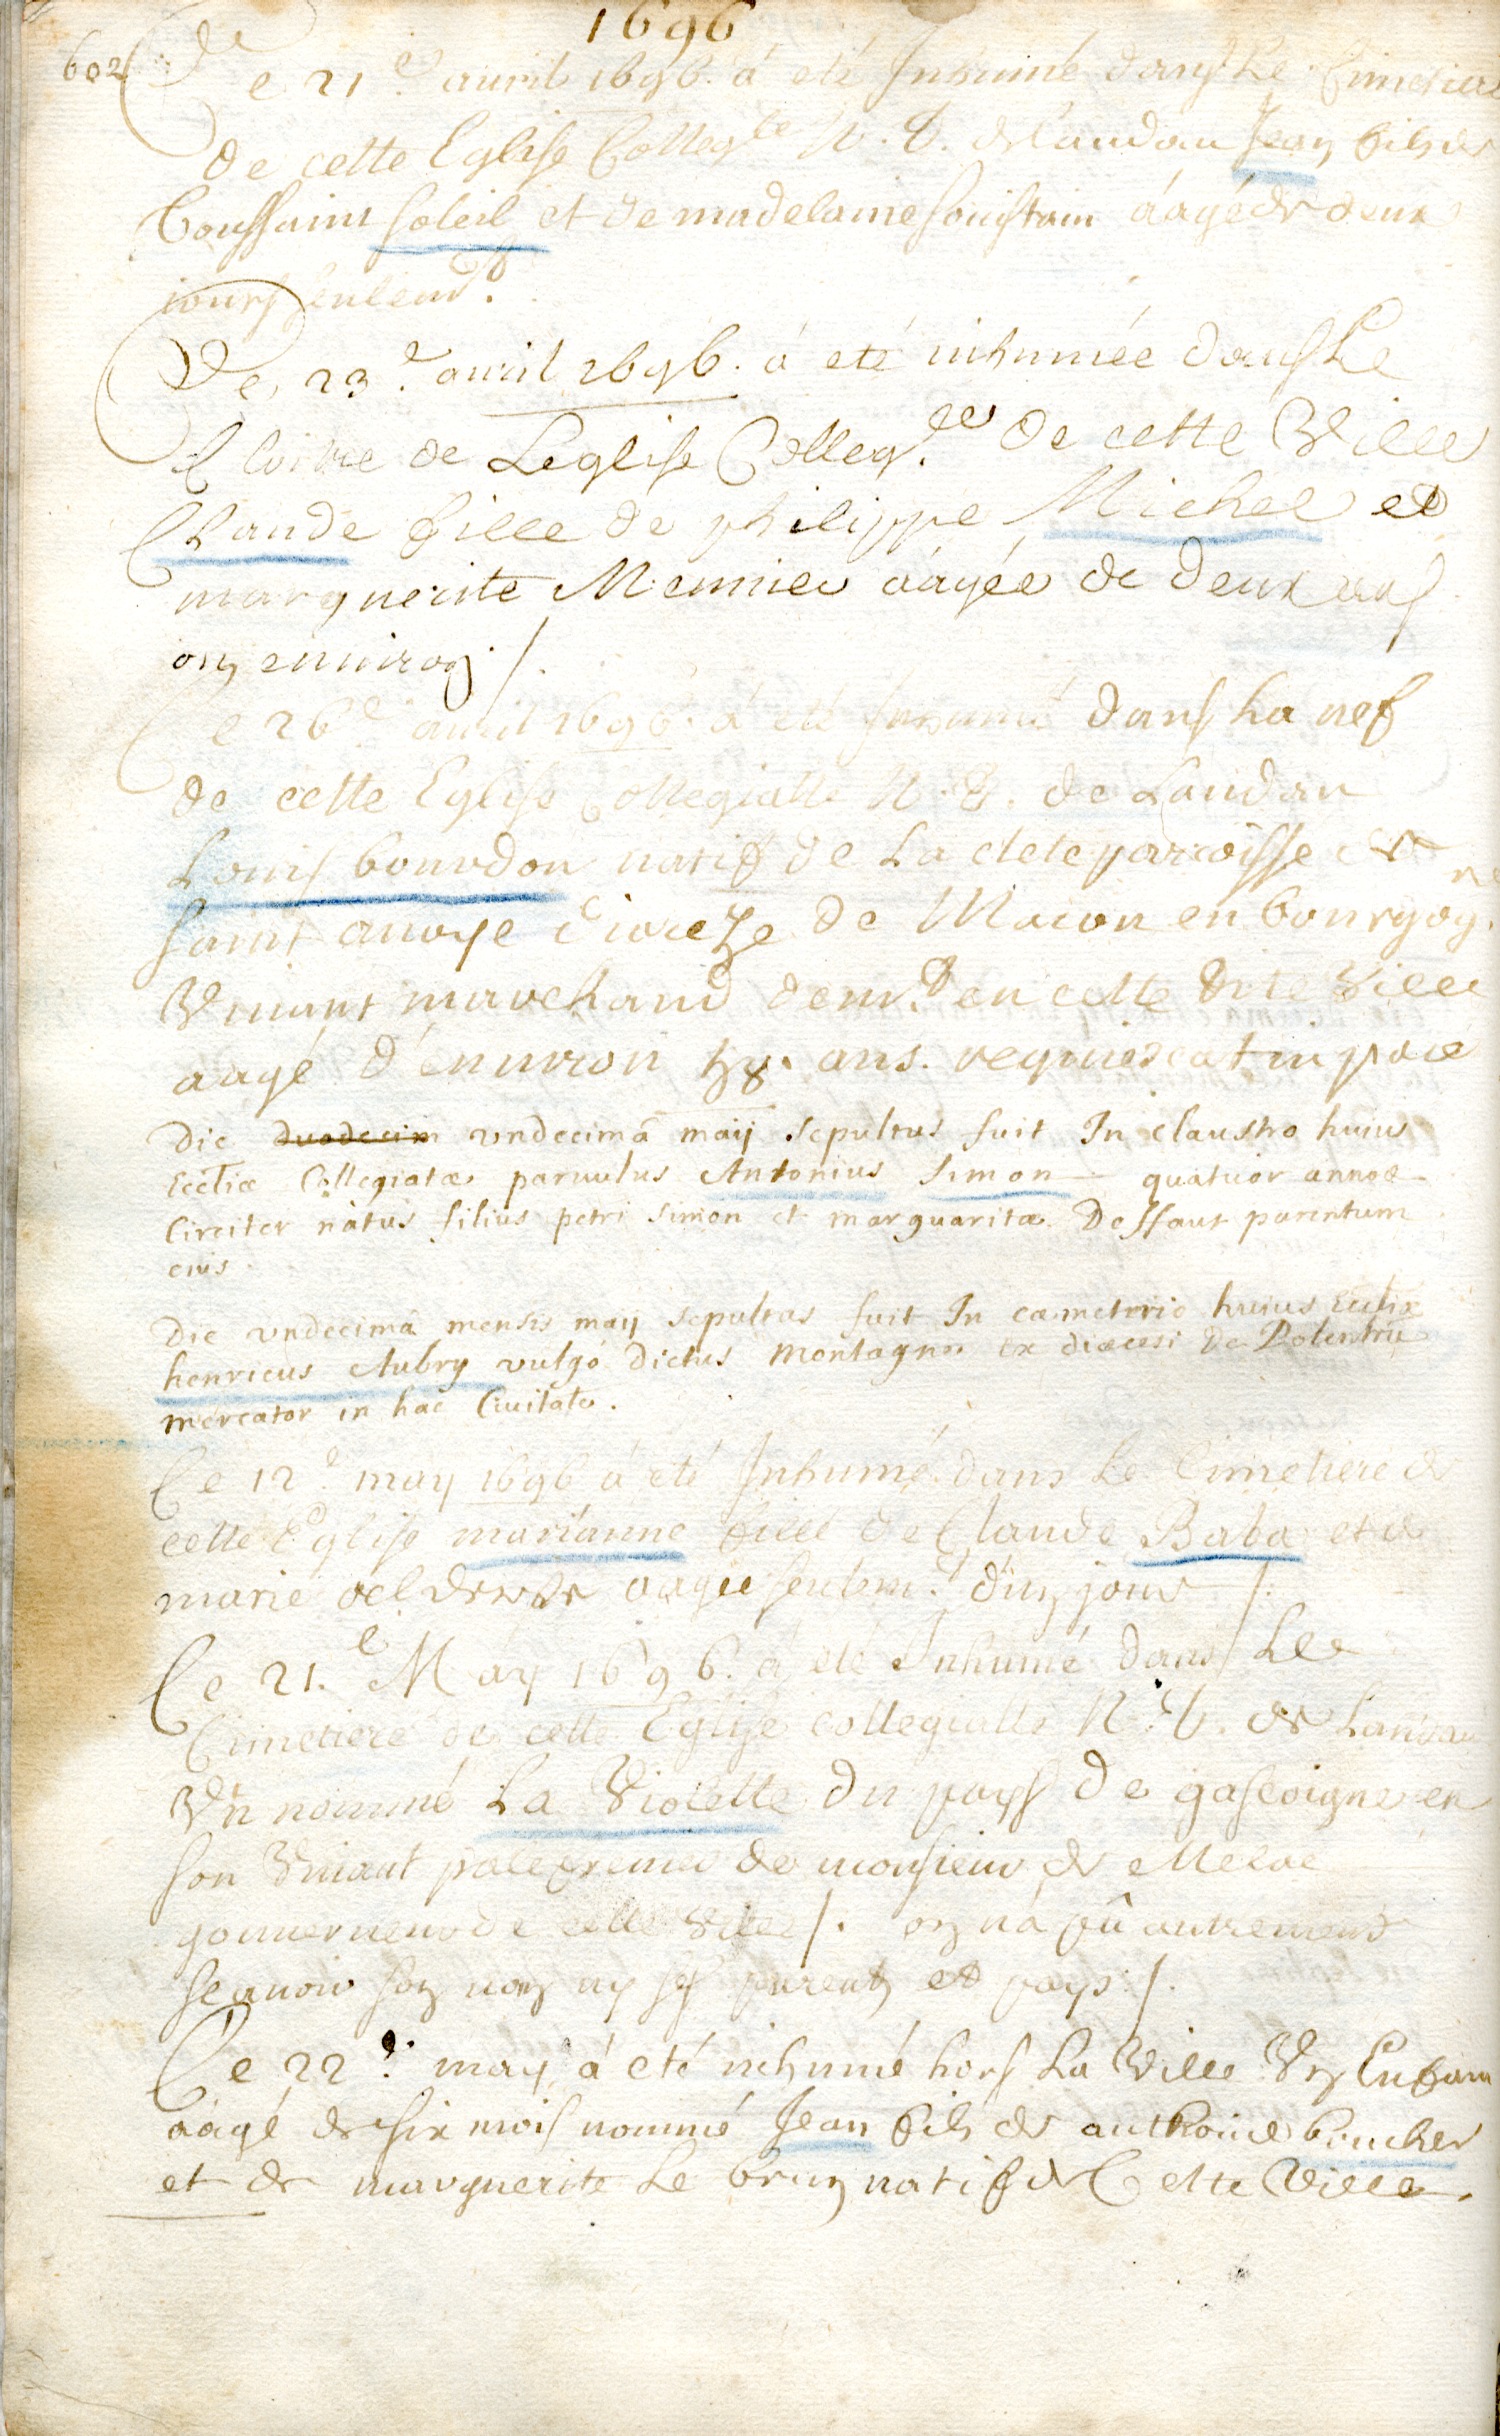 1696
602
Ce 21.e auril 1696. á eté Inhumé dans Le Cimetiere
de cette Eglise Colleg.le N. D. de Landau Jean fils de
Toussaint soleil et de madelaine áagé de deux
jours seulem.t
Ce 23.e auril 1696. á eté inhumée dans Le
Cloitre de Leglise Colleg.lle de cette Ville
Claude fille de philippe Michel et
marguerite Meunier áagée de deux ans
ou enuiron /.
Ce 26.e auril 1696. á eté Inhumé dans La nef
de cette Eglise Collegialle N. D. de Landau
Louis bourdon natif de La paroisse de
saint dioceze de Macon en bourgog.ne
Viuant marchand dem.t en cette Ville
aagé d'enuiron ans. requiescat in pace
Die duodecim vndecimâ maij sepultus fuit In claustro huius
Eccliæ Collegiatæ paruulus Antonius Simon quatuor annos
Circiter natus filius petri simon et marguaritæ Deffaut parentum
eius
Die vndecimâ mensis maij sepultus fuit In cœmeterio huius Eccliæ
henricus Aubry vulgó Dictus Montagne ex diœcesi De
mercator in hac Ciuitate.
Ce 12.e may 1696 á eté Inhumé dans Le Cimetiere de
cette Eglise marianne fille de Claude Baba et de
marie aagée seulem.t d'un jour /.
Ce 21.e May 1696. á eté Inhumé dans Le
Cimetiere de cette Eglise collegialle N. D. de Landau
Vn nommé La Violette du pays de gascoigne en
son Viuant palefrenier de monsieur de Melac
gouuerneur de cette Ville /. on n'a pû autrement
scauoir son nom ny ses parents et pays /.
Ce 22.e may á eté inhumé hors La Ville Vn Enfant
áagé de six mois nommé Jean fils de anthoine boucher
et de marguerite Le brun natif de Cette Ville.